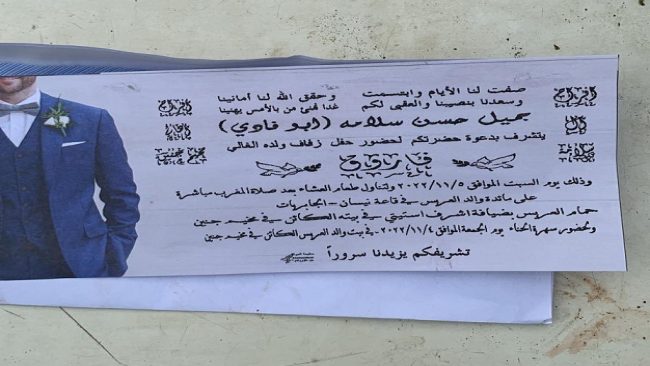 صفت لنا الأيام وابتسمت وحقق الله لنا أمانينا
وسعدنا بنصيبنا والعقبى لكم غدا لمن بالأمس يهنينا
أفراح آل سلامه
أفراح
جميل حسن سلامه (أبو فادي)
يتشرف بدعوة حضرتكم لحضور حفل زفاف ولده الغالي
فاروق
وذلك يوم السبت الموافق ٢٠٢٢/١١/٥ وتناول طعام العشاء بعد صلاة المغرب مباشرة
على مائدة والد العريس في قاعة نيسان - الجابريات
حمام العريس بضيافة اشرف استيتي في بيته الكائن في مخيم جنين
ولحضور سهرة الحناء يوم الجمعة الموافق ٢٠٢٢/١١/٤ في بيت والد العريس الكائن في مخيم جنين
تشريفكم يزيدنا سروراً